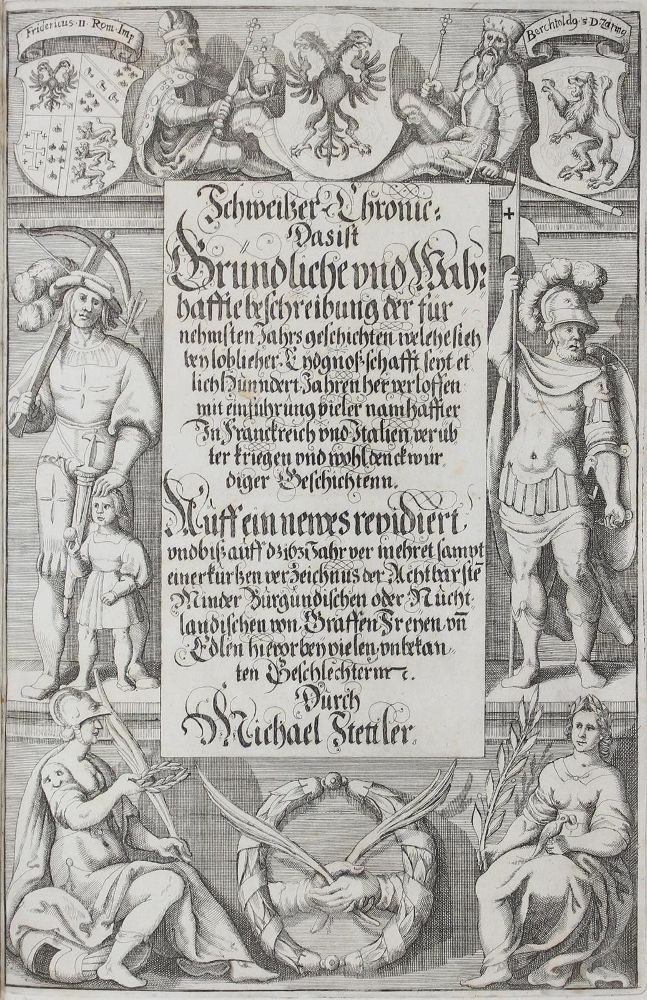 Fridericus · II · Rom · Imp
Berchtoldg 5 D Zäring
Schweitzer-Chronic:
Das ist
Gründliche vnd Wah:
haffte beschreibung der für
nehmsten Jahrs geschichten welche sich
bey loblicher Eydgnoßschafft seyt et
lich Hünndert Jahren her verloffen
mit einführung vieler namhaffter
In Franckreich vnd Italien verüb
ter kriegen vnd wohl denckwur
diger Geschichtenn.
Auff ein newes revidiert
vnd biß auff dz 1631 Jahr ver mehret sampt
einer kurtzen verzeichnus der Achtbarstē
Minder Bürgundischen oder Nücht
landischen von Graffen Freyen vn̄
Edlen hievor bey vielen vnbekan
ten Geschlechternn
Durch
Michael Stettler